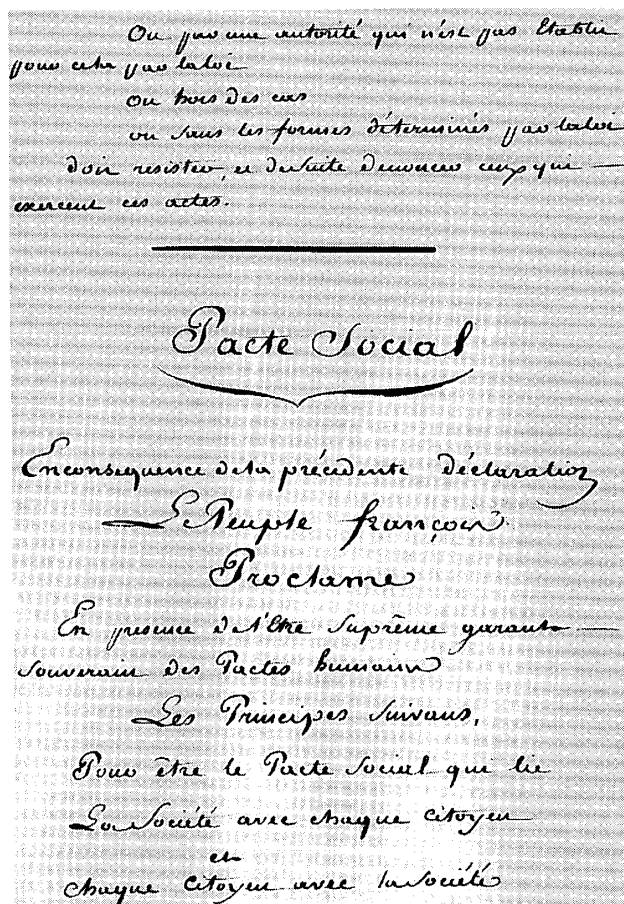 Ou par une autorité qui n'est pas Etablie
pour cela par la loi
ou hors des cas
ou sans les formes déterminés par la loi
doit resister, et de suite denoncer ceux qui
exercent ces actes.
Pacte Social
En consequence de la précédente déclaration
Le Peuple françois
Proclame
En presence de l'Etre Suprême garant
souverain des Pactes humains
Les Principes Suivans,
Pour être le Pacte Social qui lie
La Société avec chaque citoyen
et
chaque citoyen avec la société